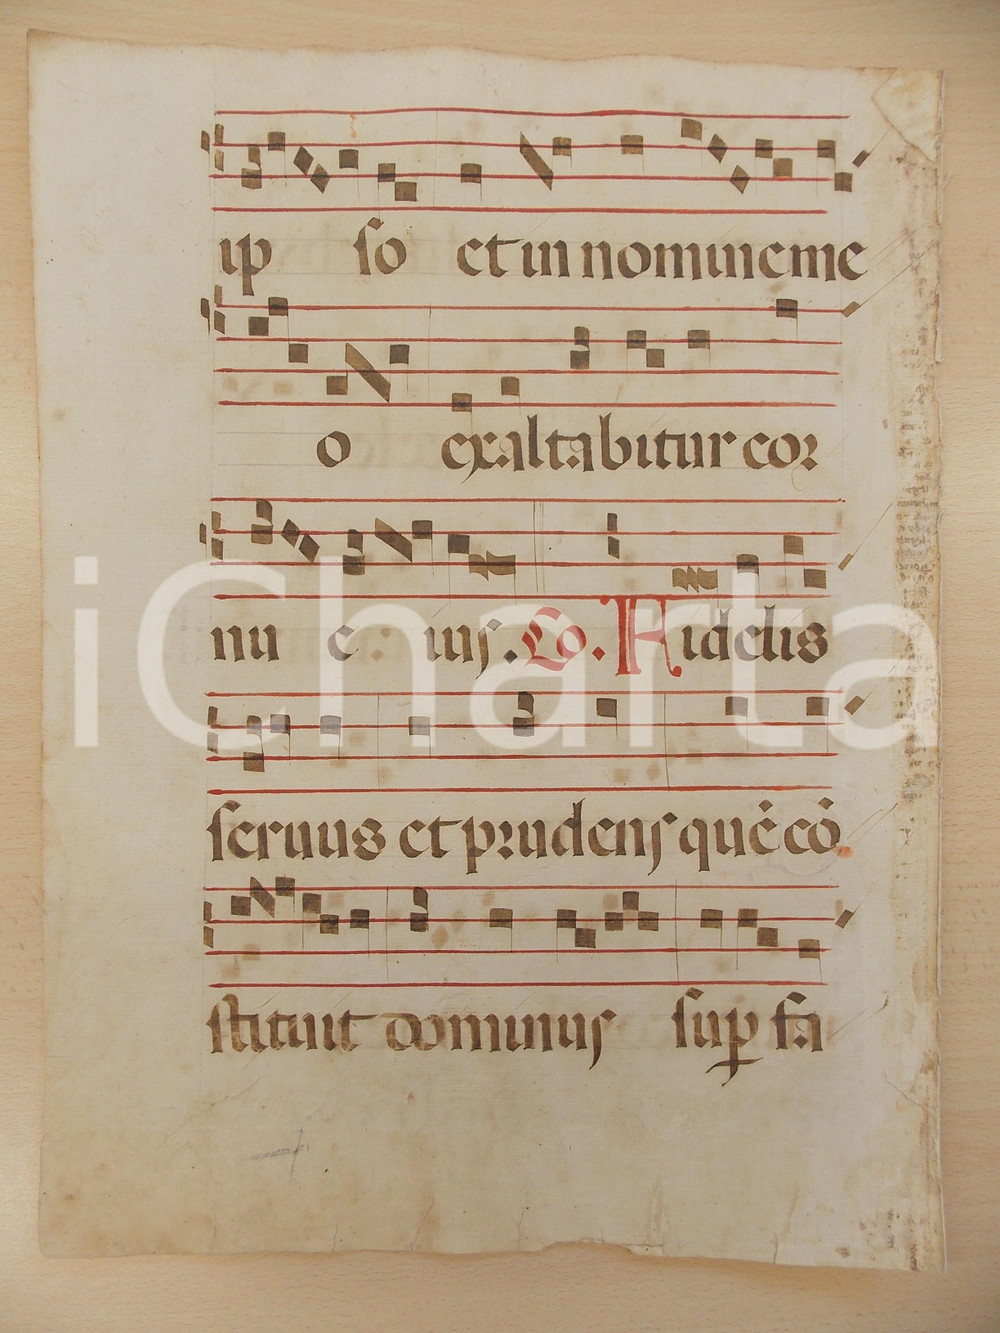 ip so et in nomine me
o exaltabitur cor
nu e ius. Co. Fidelis
seruus et prudens quē cō
stituit dominus sup fa
iCharta